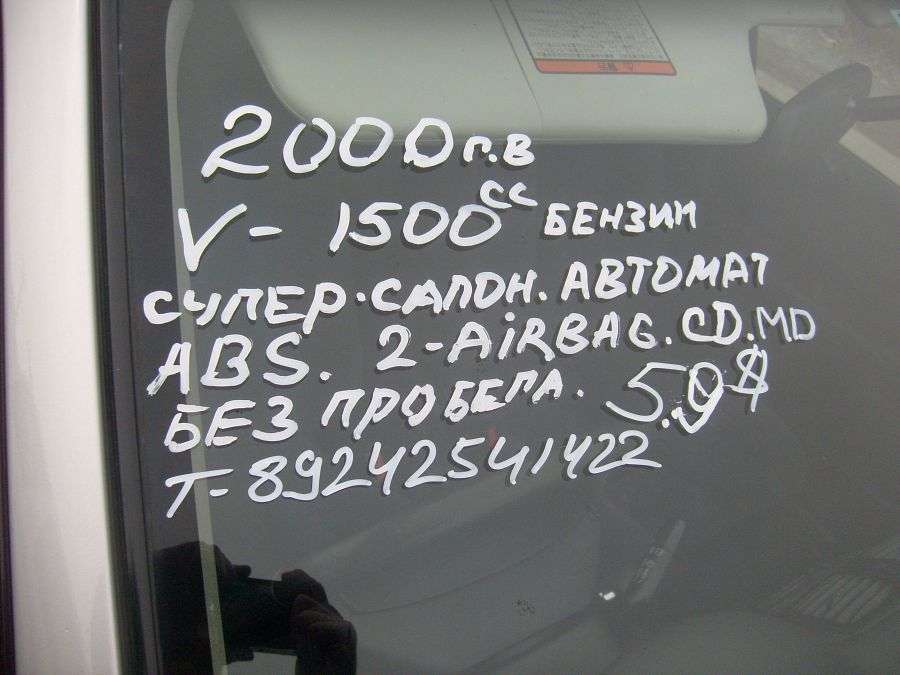 2000 г.в
V- 1500 cc БЕНЗИН
СУПЕР·САЛОН. АВТОМАТ
ABS. 2-AiRBAG. CD. MD
БЕЗ ПРОБЕГА. 5.9$
Т-89242541422